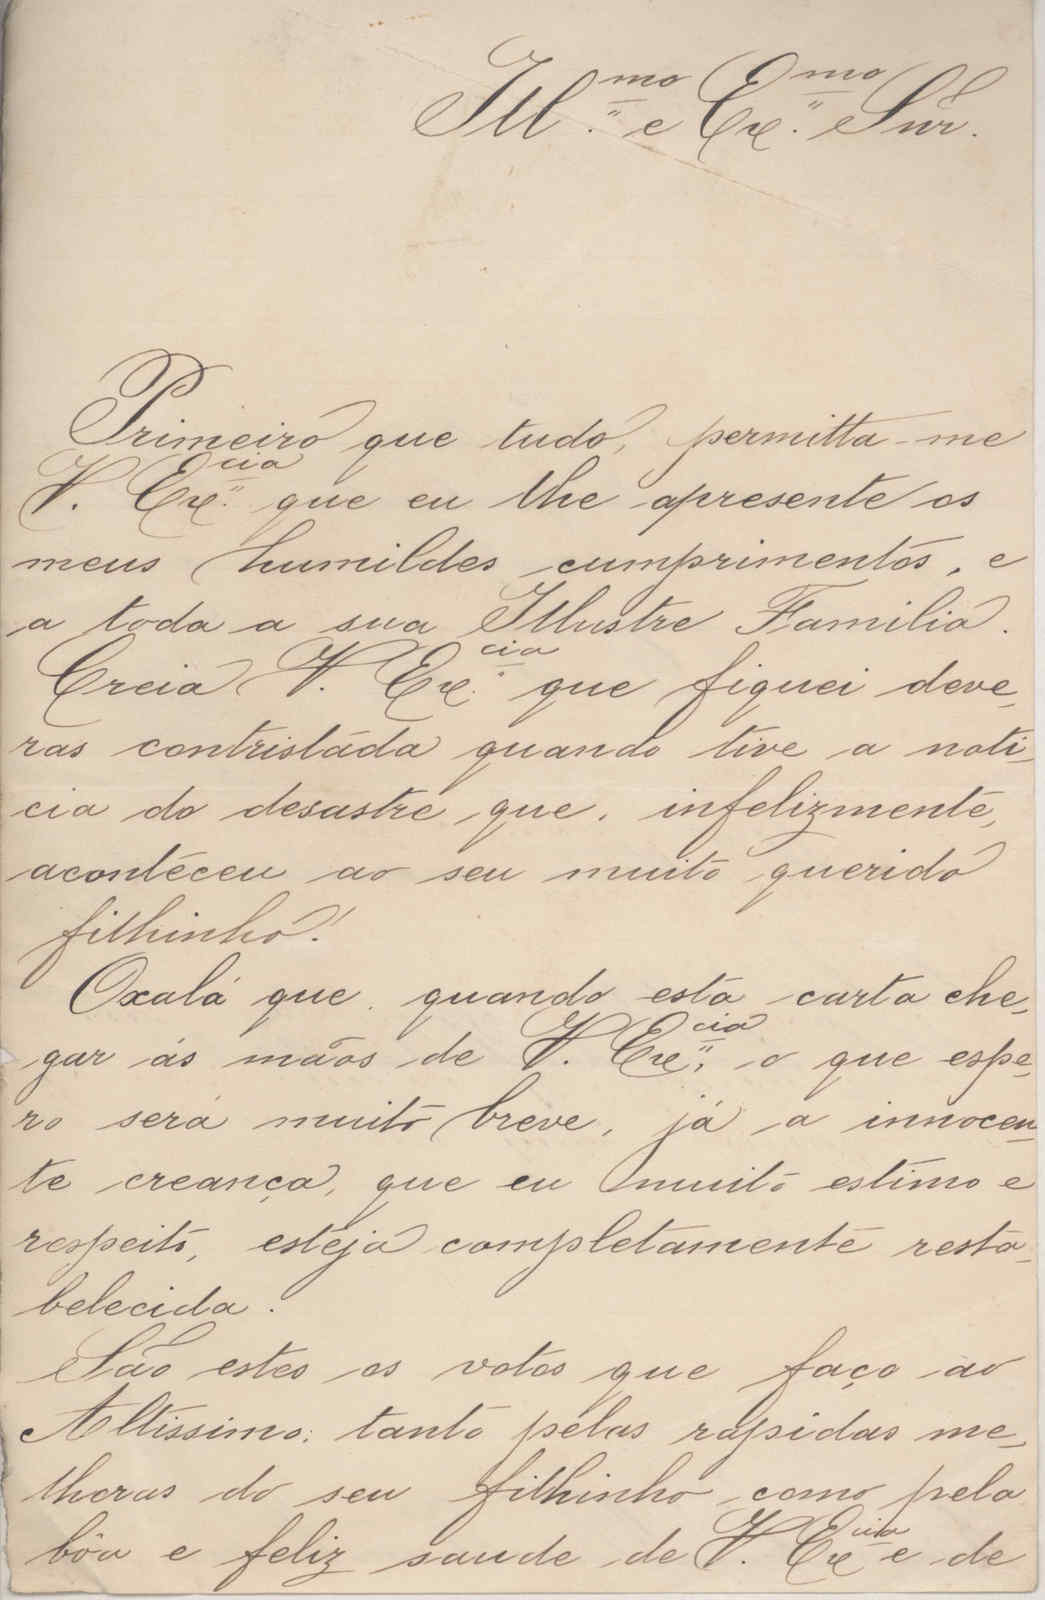 Ill.mo e Ex.mo Snr.
Primeiro que tudo, permitta-me
V. Ex.cia que eu lhe apresente os
meus humildes cumprimentos, e
a toda a sua Illustre Familia.
Creia V. Ex.cia que fiquei deve-
ras contristada quando tive a noti-
cia do desastre que, infelizmente,
aconteceu ao seu muito querido
filhinho!
Oxalá que, quando esta carta che-
gar ás mãos de V. Ex.cia, o que espe-
ro será muito breve, já a innocen-
te creança, que eu muito estimo e
respeito, esteja completamente resta-
belecida.
São estes os votos que faço ao
Altissimo: tanto pelas rapidas me-
lhoras do seu filhinho como pela
bôa e feliz saude de V. Ex.cia e de